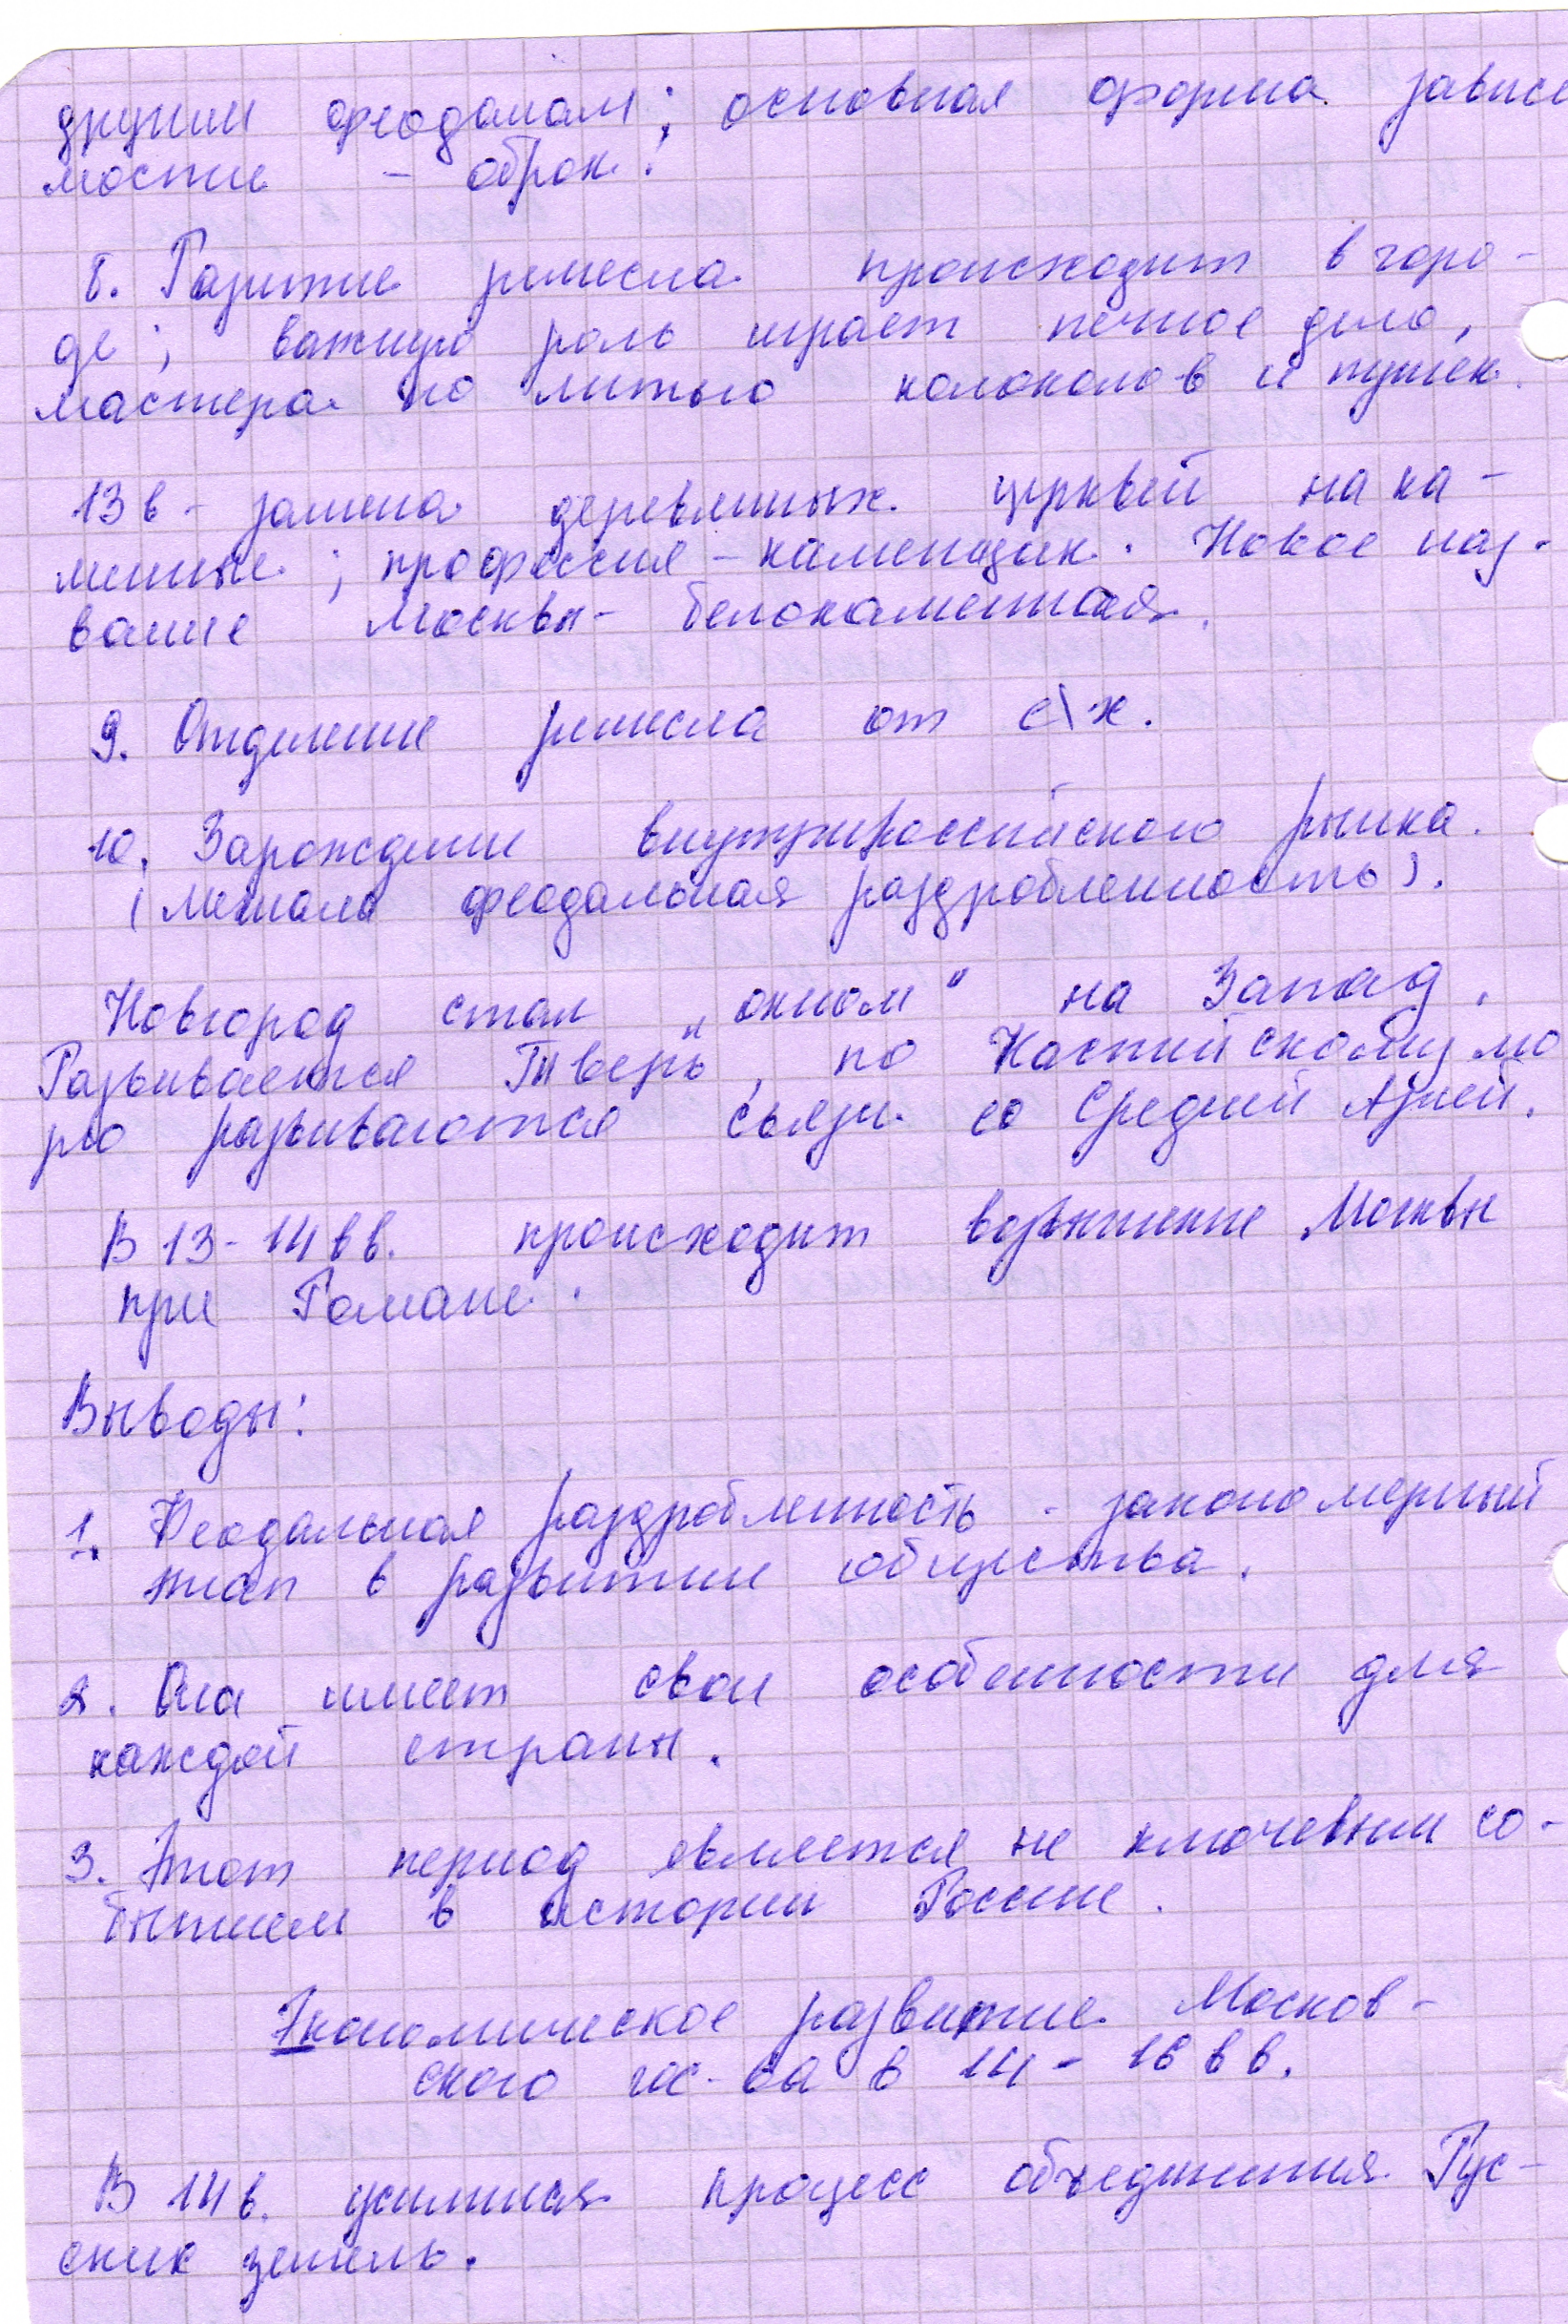 другим феодалам; основная форма зависи
мости - оброк.
8. Развитие ремесла происходит в горо-
де; важную роль играет печное дело,
мастера по литью колоколов и пушек.
13 в - замена деревянных церквей на ка-
менные; профессия - каменщик. Новое наз-
вание Москвы - белокаменная.
9. Отделение ремесла от с\х.
10. Зарождение внутрироссийского рынка.
(мешала феодальная раздробленность).
Новгород стал „окном" на Запад.
Развивается Тверь, по Каспийскому мо
рю развиваются связи со Средней Азией.
В 13-14 вв. происходит возвышение Москвы
при Романе.
Выводы:
1. Феодальная раздробленность - закономерный
этап в развитии общества.
2. Она имеет свои особенности для
каждой страны.
3. Этот период является не ключевым со-
бытием в истории России.
Экономическое развитие Москов-
ского гос-ва в 14 - 16 вв.
В 14 в. усилился процесс объединения Рус-
ских земель.